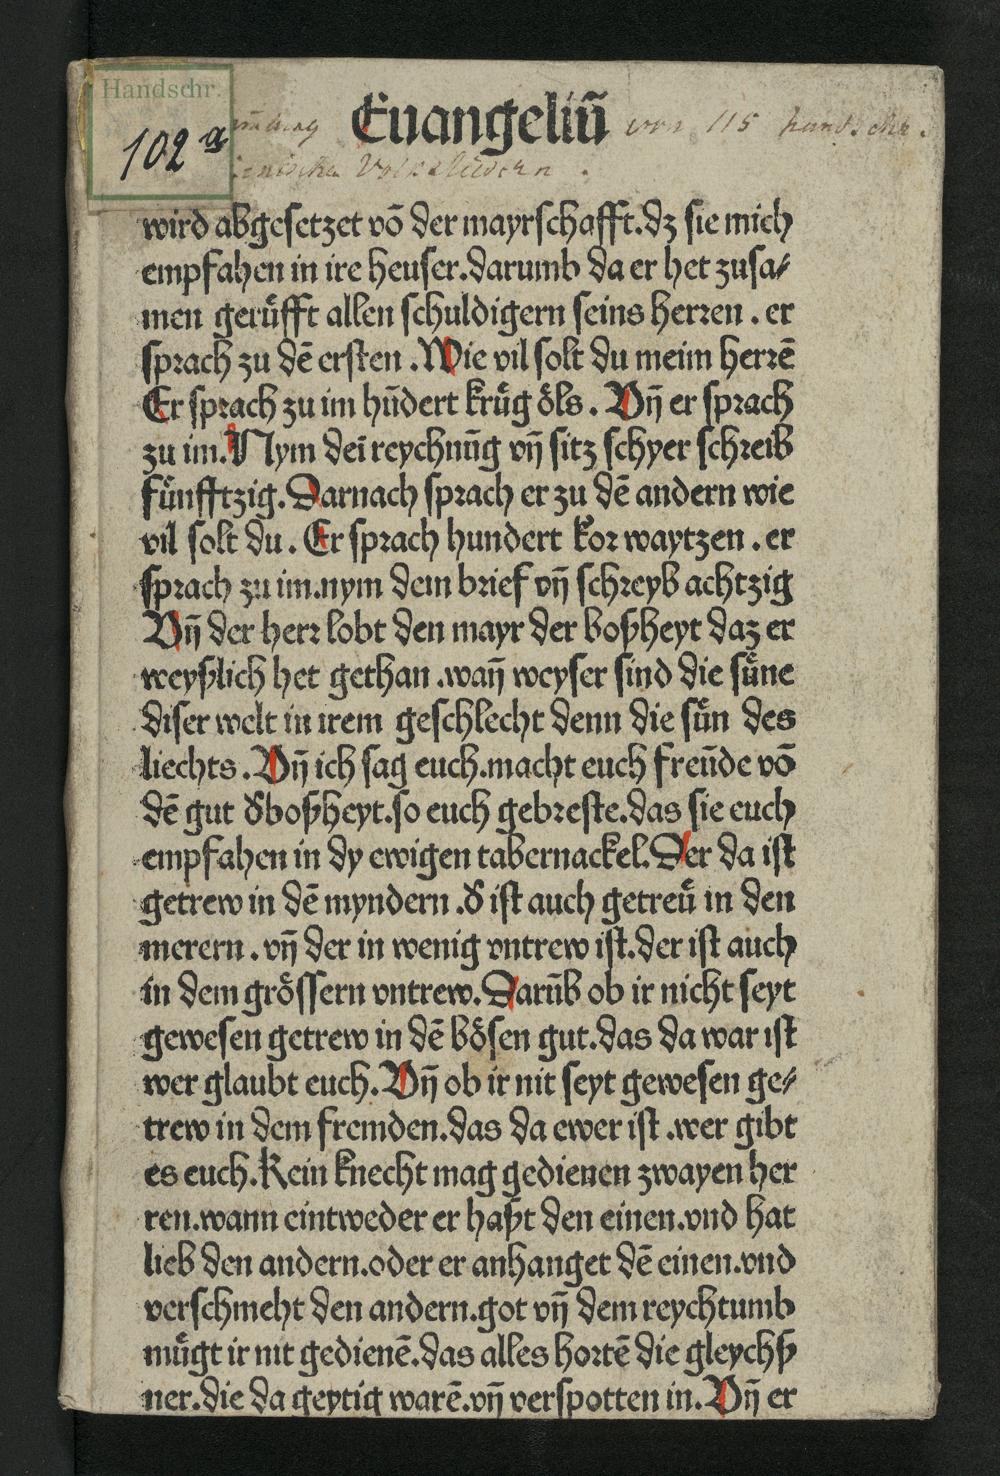 Handschr.
102 a
Euangeliū von 115 handschr.
Volksliedern.
wird abgesetzet vō der mayrschafft.dz sie mich
empfahen in ire heuser.darumb da er het zusa⸗
men gerüfft allen schuldigern seins herren . er
sprach zu dē ersten . Wie vil solt du meim herrē
Er sprach zu im hūdert krüg öls . Vn̄ er sprach
zu im. Nym deī reychnūg vn̄ sitz schyer schreib
fünfftzig. Darnach sprach er zu dē andern wie
vil solt du . Er sprach hundert kor waytzen . er
sprach zu im.nym dem brief vn̄ schreyb achtzig
Vn̄ der herr lobt den mayr der boßheyt daz er
weyßlich het gethan .wan̄ weyser sind die süne
diser welt in irem geschlecht denn die sün des
liechts . Vn̄ ich sag euch.macht euch freūde vō
dē gut d̕ boßheyt.so euch gebreste.das sie euch
empfahen in dy ewigen tabernackel. Der da ist
getrew in dē myndern .d̕ ist auch getreü in den
merern . vn̄ der in wenig vntrew ist.der ist auch
in dem grössern vntrew. Darūb ob ir nicht seyt
gewesen getrew in dē bösen gut.das da war ist
wer glaubt euch. Vn̄ ob ir nit seyt gewesen ge⸗
trew in dem fremden.das da ewer ist .wer gibt
es euch.Kein knecht mag gedienen zwayen her
ren.wann eintweder er haßt den einen.vnd hat
lieb den andern.oder er anhanget dē einen.vnd
verschmeht den andern.got vn̄ dem reychtumb
mügt ir nit gedienē.das alles hortē die gleychß
ner.die da geytig warē.vn̄ verspotten in. Vn̄ er